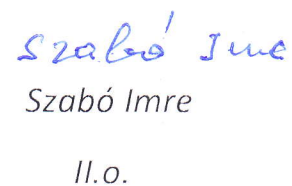 Szabó Imre
Szabó Imre
II.o.